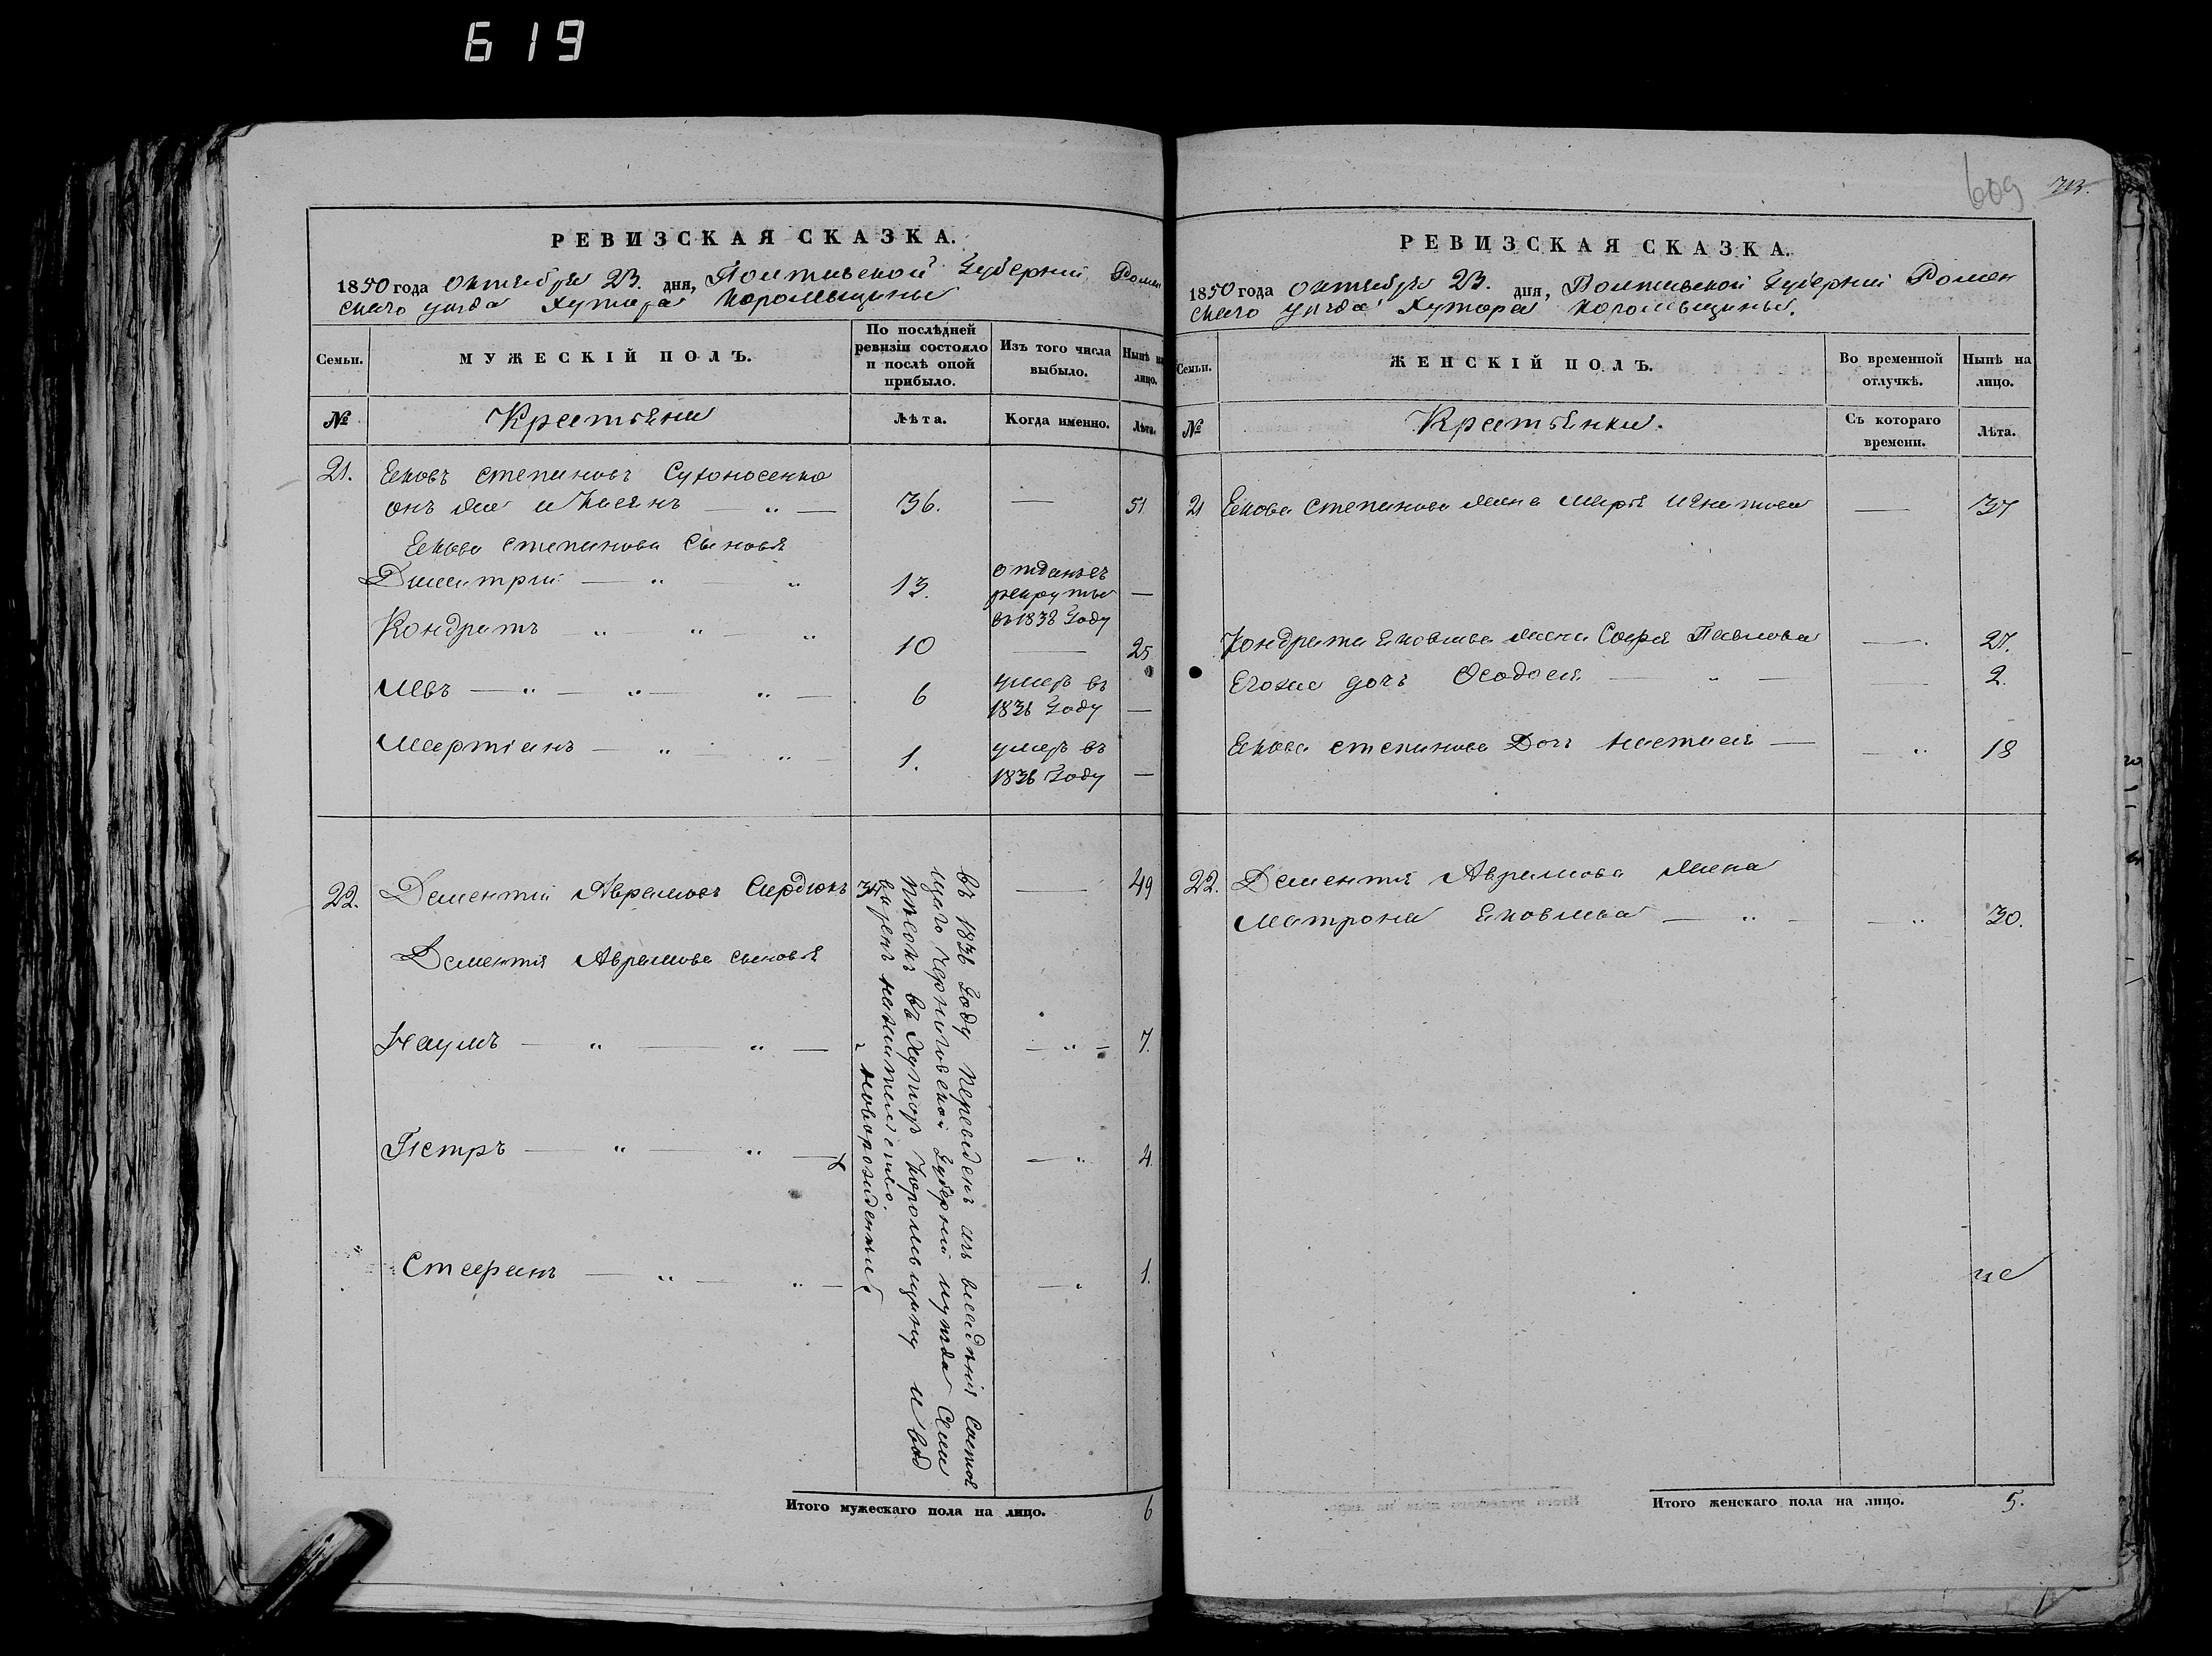 619
609
713.
РЕВИЗСКАЯ СКАЗКА.
1850 года Октября 23. дня, Полтавской Губернии Ромен
скаго уезда Хутора Корольщины
Семьи.
МУЖЕСКІЙ ПОЛЪ.
По послѣдней ревизіи состояло и послѣ оной прибыло.
Изъ того числа выбыло.
Нынѣ на лицо.
№
Крестьяни
Лѣта.
Когда именно.
Лѣта.
21. Яковъ Степановъ Сухоносенко
онъ же и Касянъ — „ — 36. — 51
Якова Степанова сыновья
Дмитрий — „ — „ 13. отданъ въ рекруты въ 1838 Году —
Кондратъ „ „ — „ 10 — 25
Левъ — „ — „ — „ — 6 умеръ въ 1836 Году —
Мартіанъ — „ — „ — 1. умеръ въ 1836 Году —
22. Дементій Аврамовъ Сердюкъ 34 — 49
Дементія Аврамова сыновья
Наумъ — „ — „ — — „ — 7.
Петръ — „ — „ — — „ 4
Стефанъ — „ — „ — — „ 1.
въ 1836 Году переведенъ изъ
щаго Черниговской Губерніи
въ Хуторъ Корольщину и вод
варенъ на жительство.
новорожденные
Итого мужескаго пола на лицо. 6
РЕВИЗСКАЯ СКАЗКА.
1850 года Октября 23. дня, Полтавской Губерній Ромен
скаго уезда Хутора Корольщины.
Семьи.
ЖЕНСКІЙ ПОЛЪ.
Во временной отлучкѣ.
Нынѣ на лицо.
№
Крестьянки.
Съ котораго времени.
Лѣта.
21 Якова Степанова жена Марья Игнатова — 37
Кондрата Яковлева жена Софья Павлова — 27.
Егоже дочь Феодосія — „ — — 2.
Якова Степанова Дочь Настасія — — „ 18
22. Дементія Аврамова жена
Матрона Яковлева — „ — — „ 30.
Итого женскаго пола на лицо. 5.